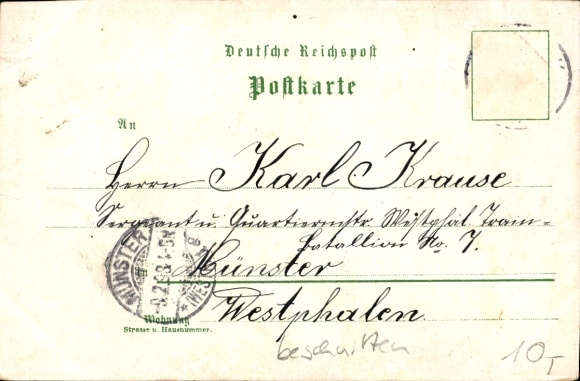 Deutsche Reichspost
Postkarte
An
Herrn Karl Krause
Sergeant u. Quartiermstr. Westphäl. Train-
Batallion No. 7.
Münster
Westphalen.
Wohnung
Strasse u. Hausnummer.
MÜNSTER
beschnitten
10